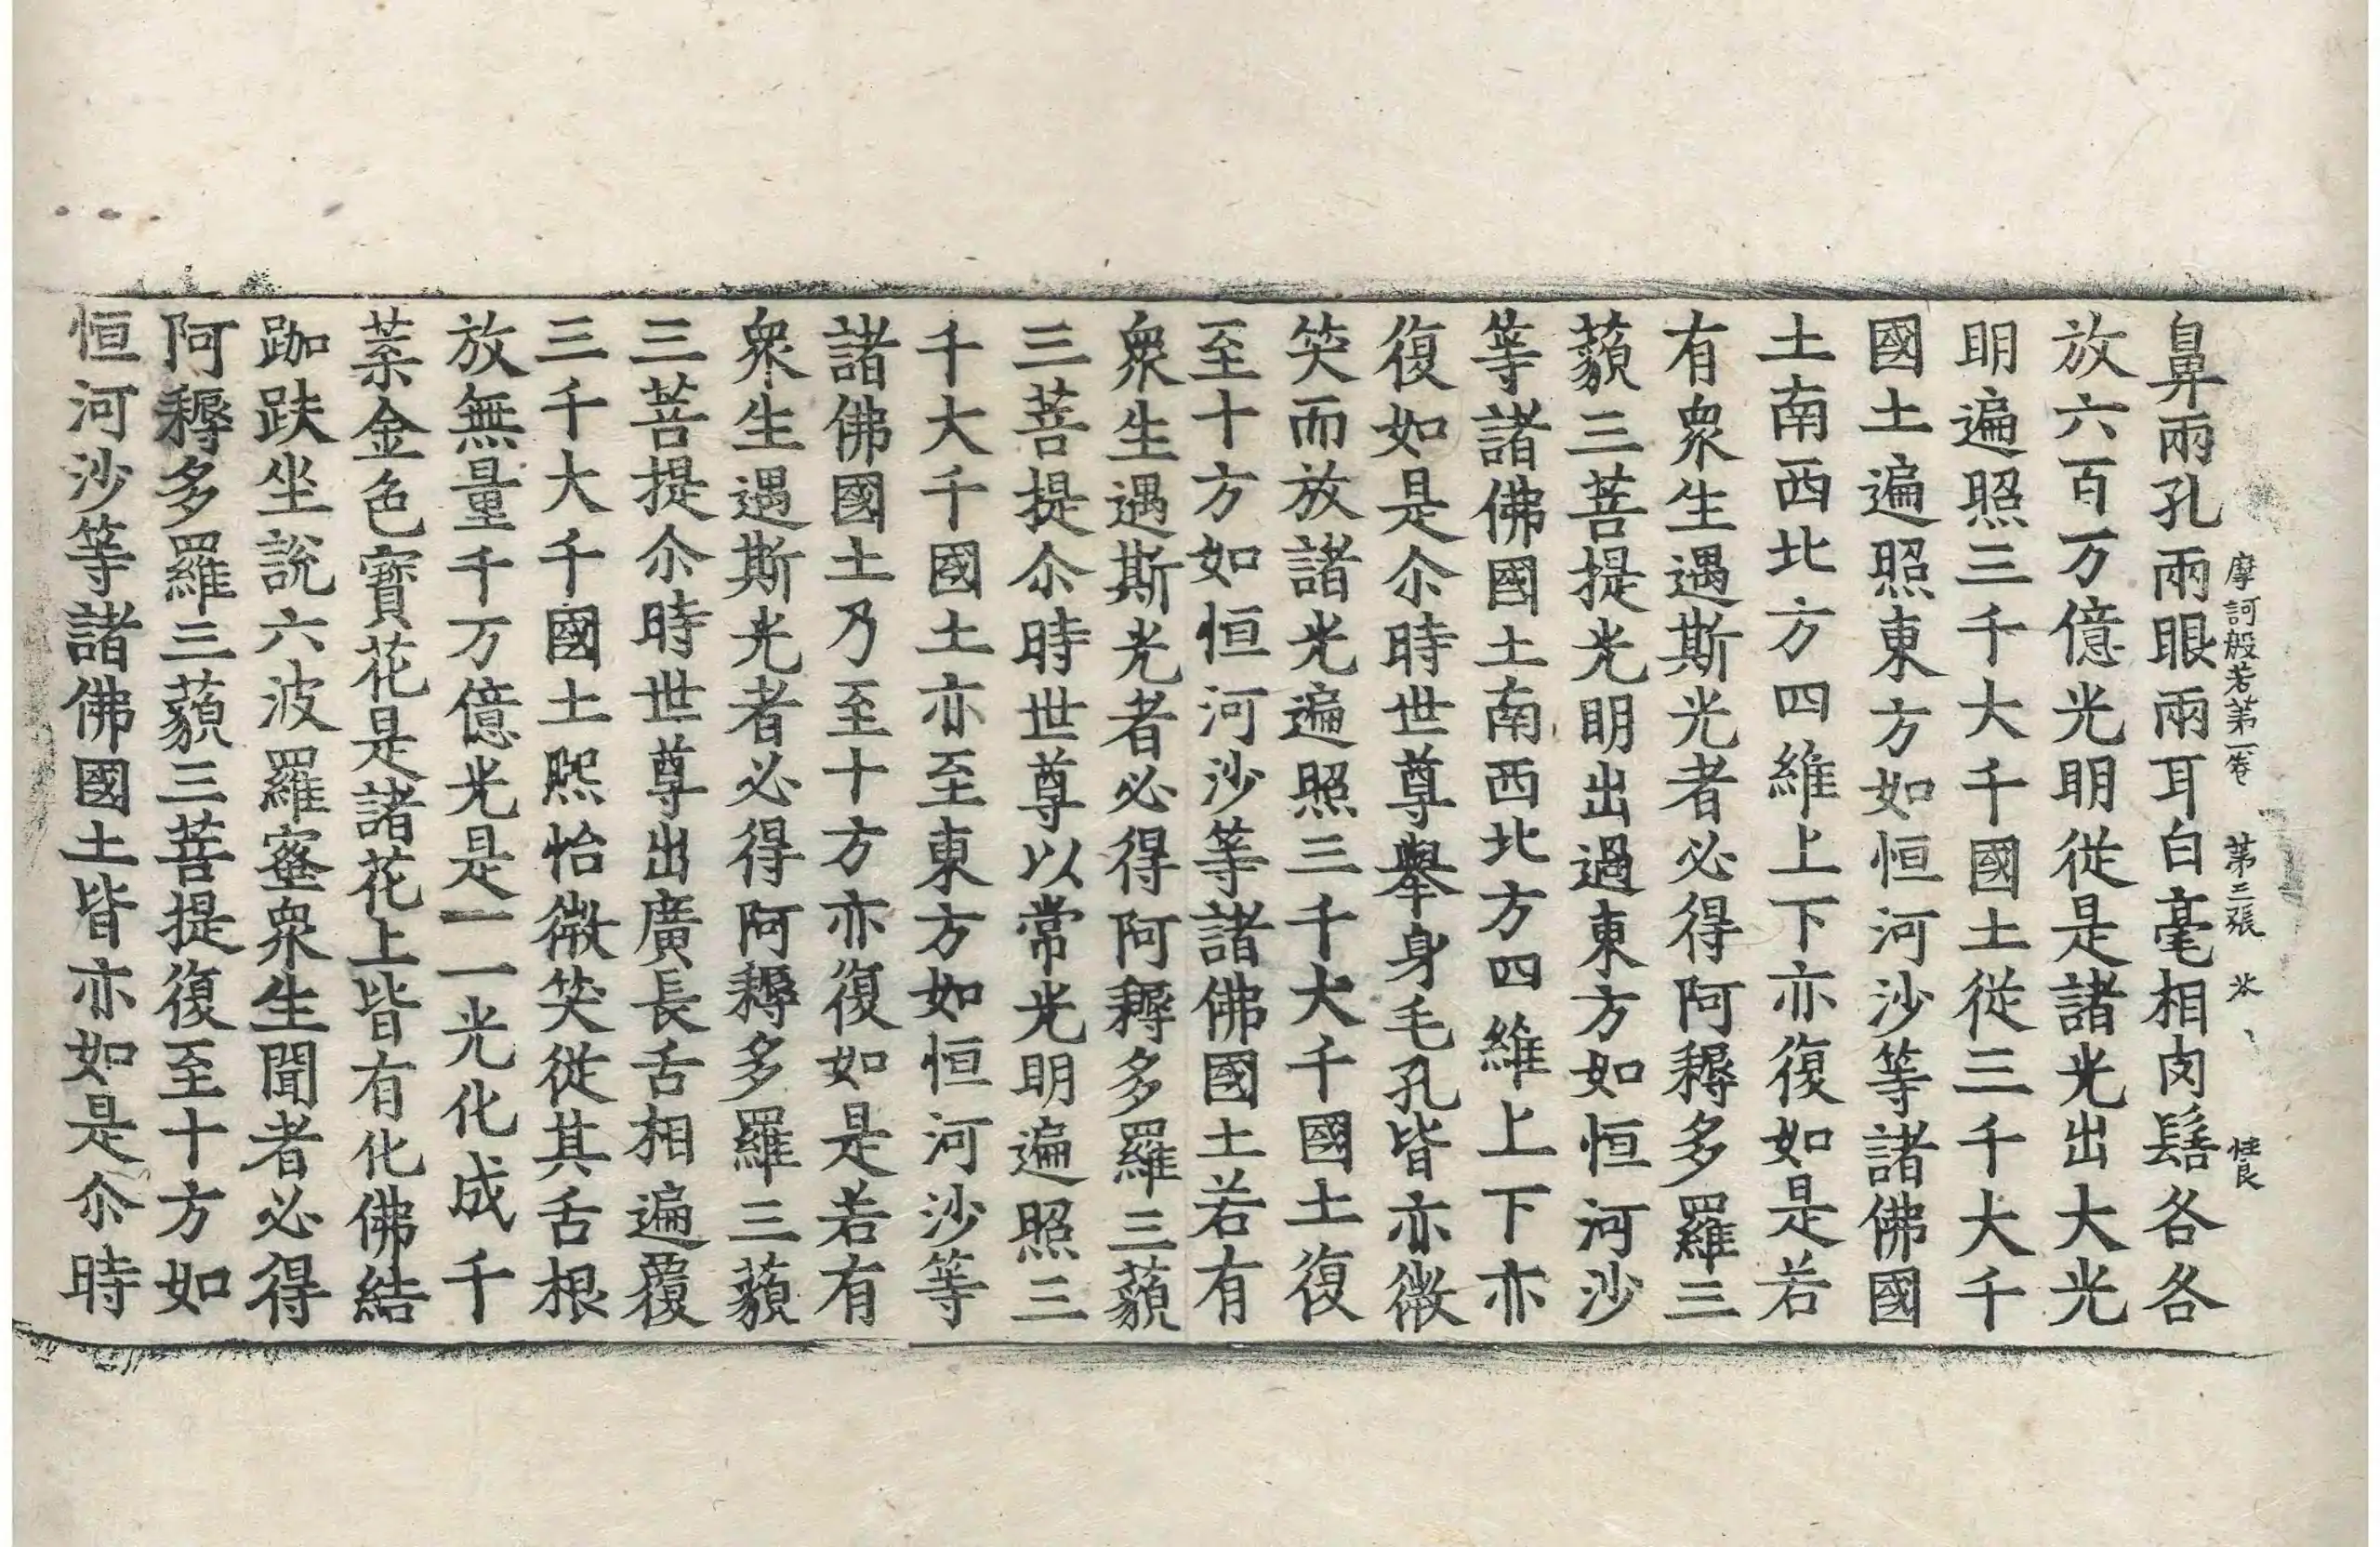 摩訶般若第一卷　第三張　氷
鼻兩孔兩眼兩耳白毫相肉髻各各
放六百万億光明從是諸光出大光
明遍照三千大千國土從三千大千
國土遍照東方如恒河沙等諸佛國
土南西北方四維上下亦復如是若
有衆生遇斯光者必得阿耨多羅三
藐三菩提光明出過東方如恒河沙
等諸佛國土南西北方四維上下亦
復如是尒時世尊舉身毛孔皆亦微
笑而放諸光遍照三千大千國土復
至十方如恒河沙等諸佛國土若有
衆生遇斯光者必得阿耨多羅三藐
三菩提尒時世尊以常光明遍照三
千大千國土亦至東方如恒河沙等
諸佛國土乃至十方亦復如是若有
衆生遇斯光者必得阿耨多羅三藐
三菩提尒時世尊出廣長舌相遍覆
三千大千國土熈怡微笑從其舌根
放無量千万億光是一一光化成千
葉金色寶花是諸花上皆有化佛結
跏趺坐說六波羅蜜衆生聞者必得
阿耨多羅三藐三菩提復至十方如
恒河沙等諸佛國土皆亦如是尒時